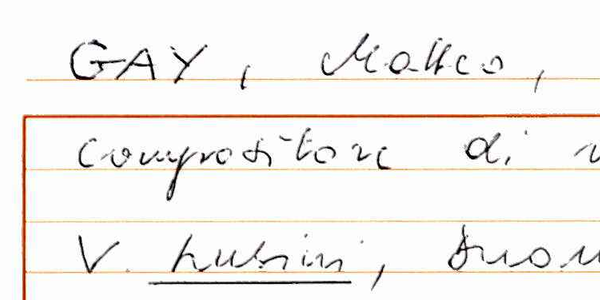 GAY, Matteo,
compositore di
V. Rubini,